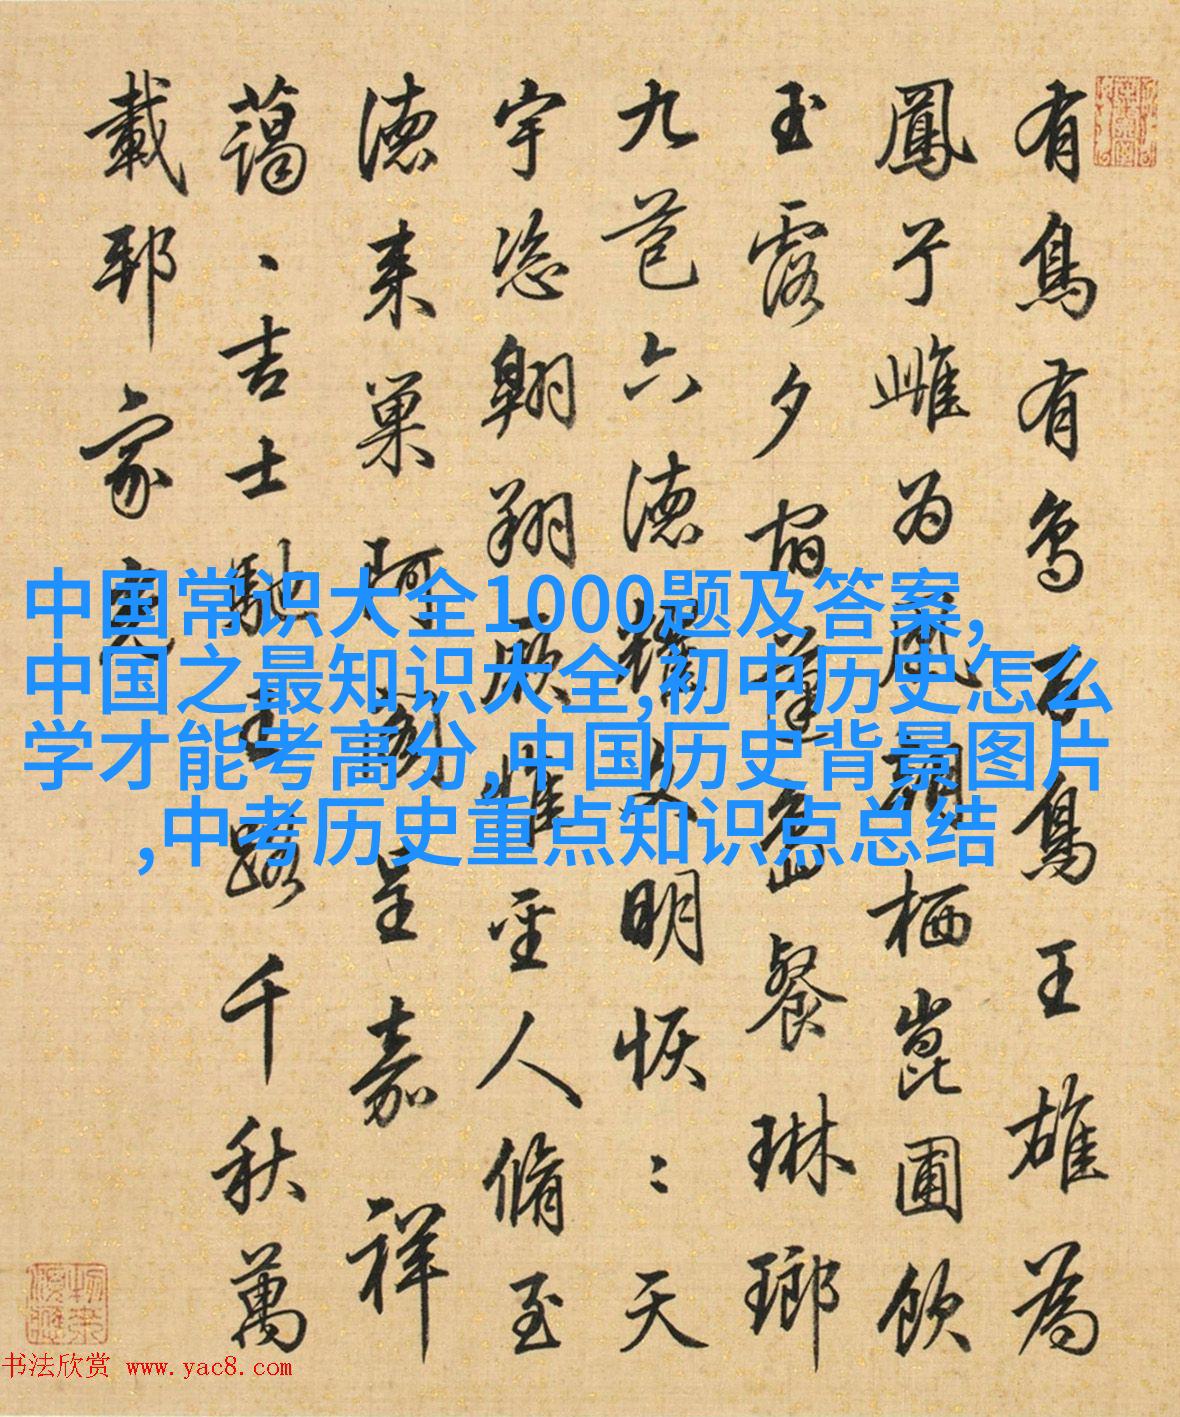 有鳥有鳥百鳥王雄為
鳳兮雌為凰朝栖崑圃飲
玉露夕宿蓬島餐琳瑯
九苞六德耀文明恢〻天
宇恣翱翔厥惟聖人脩至
德来巢阿閣呈嘉祥
藹〻吉士馳王路千秋萬
載邦家光
中国常识大全1000题及答案,
中国之最知识大全,初中历史怎么
学才能考高分,中国历史背景图片
,中考历史重点知识点总结
书法欣赏 www.yac8.com